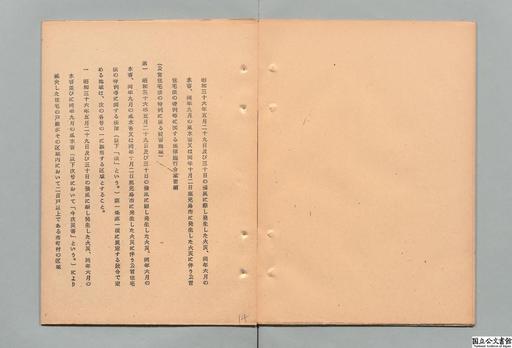 昭和三十六年五月二十九日及び三十日の強風に際し発生した火災、同年六月の
水害、同年九月の風水害又は同年十月二日鹿児島市に発生した火災に伴う公営
住宅法の特例等に関する法律施行令案要綱
(公営住宅法の特例に係る被害地域)
第一 昭和三十六年五月二十九日及び三十日の強風に際し発生した火災、同年六月の
水害、同年九月の風水害又は同年十月二日鹿児島市に発生した火災に伴う公営住宅
法の特例等に関する法律(以下「法」という。)第一条第一項に規定する政令で定
める地域は、次の各号の一に該当する区域とすること。
一 昭和三十六年五月二十九日及び三十日の強風に際し発生した火災、同年六月の
水害並びに同年九月の風水害(以下次号において「今次災害」という。)により
滅失した住宅の戸数がその区域内において二百戸以上である市町村の区域
14
国立公文書館
National Archives of Japan